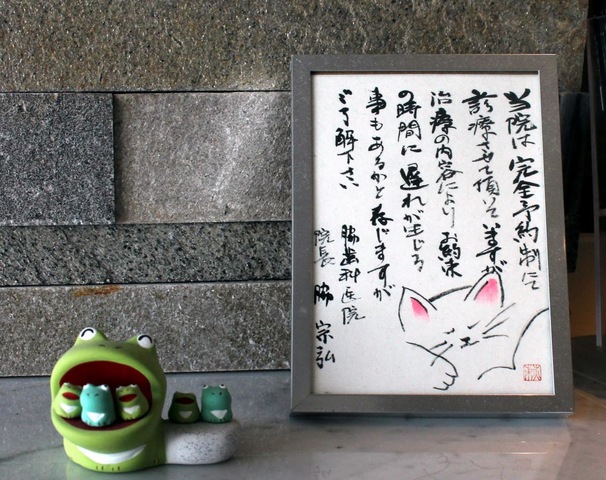 当院は完全予約制にて
診療させて頂いていますが
治療の内容によりお約束
の時間に遅れが生じる
事もあるかと存じますが
ご了解下さい
脇歯科医院
院長 脇 宗弘